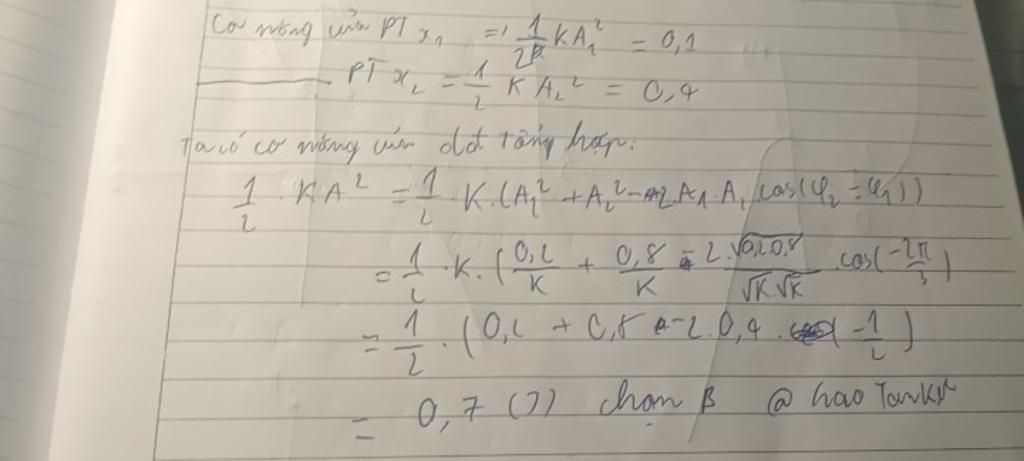 Cơ năng của PT x₁ => 1/2 KA₁² = 0,1
PT x₂ = 1/2 K A₂² = 0,4
Ta có cơ năng của dđ tổng hợp:
1/2 · KA² = 1/2 · K.(A₁² + A₂² - 2.A₁.A₂ cos(φ₂ - φ₁))
= 1/2 · K. (0,2/K + 0,8/K - 2.√0,2.0,8/√K.√K · cos(-2π/3)
= 1/2 · (0,2 + 0,8 - 2.0,4 . (-1/2)
= 0,7 (J) chọn B @